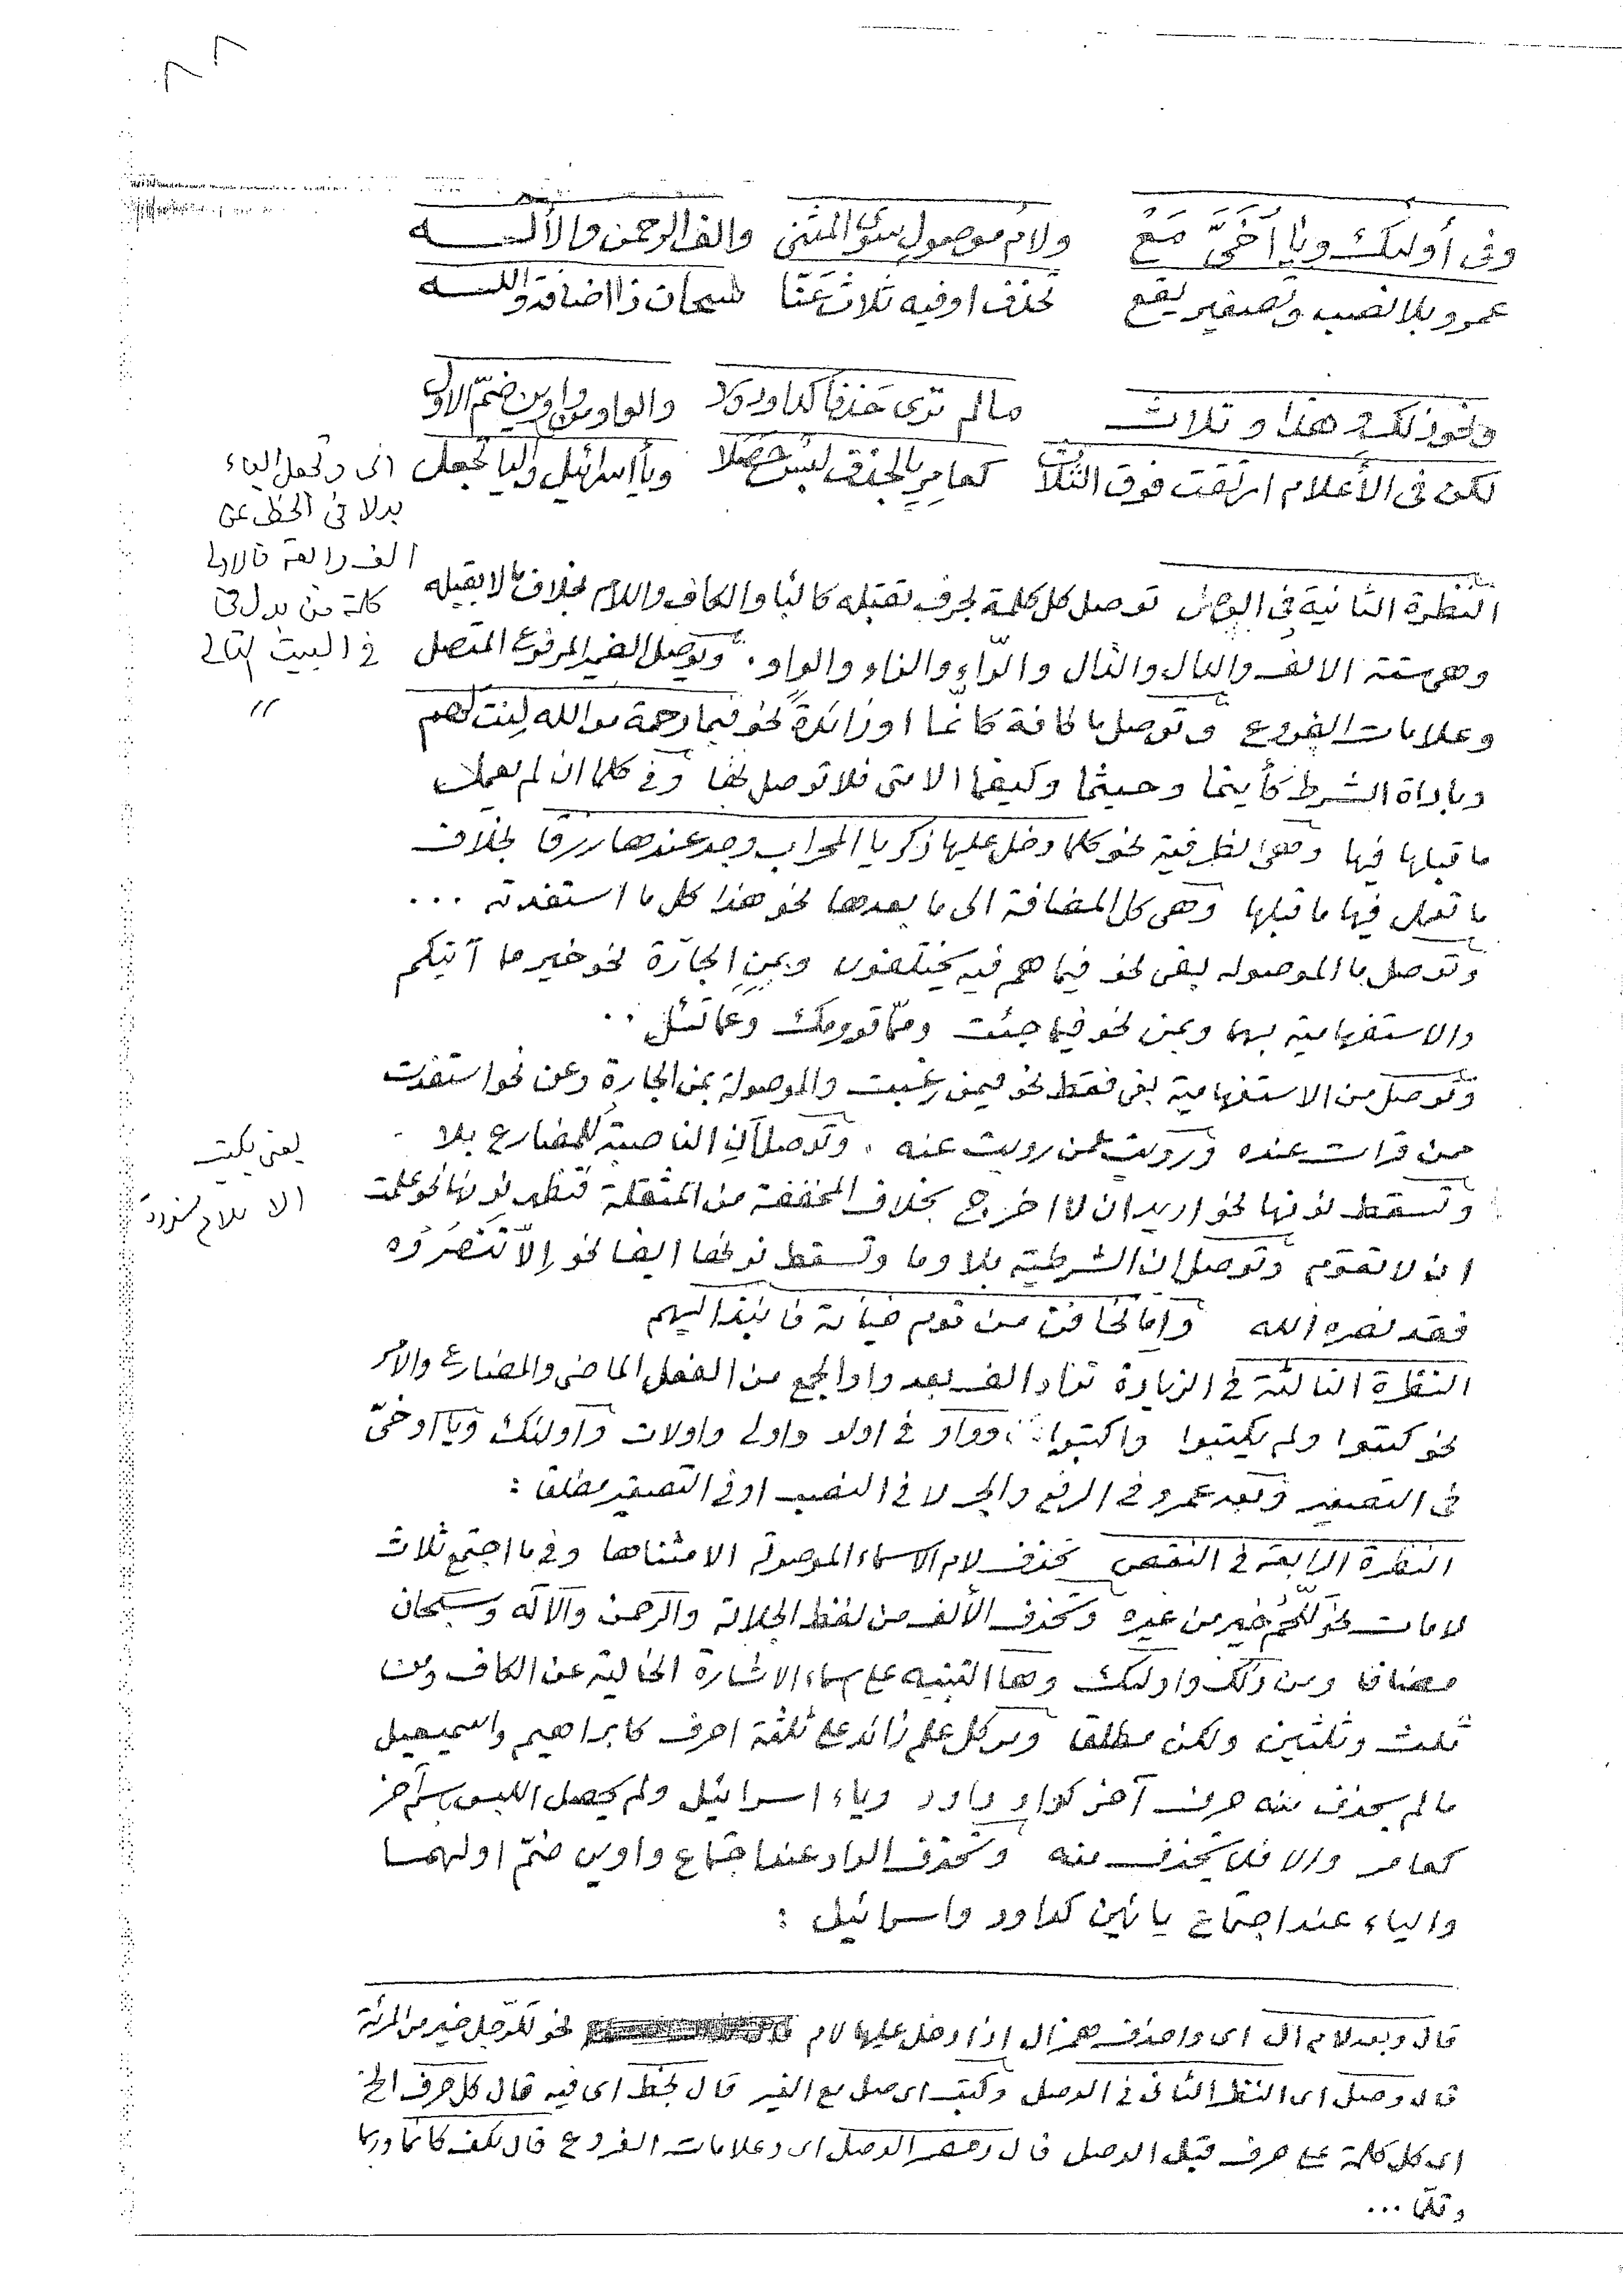 ٨٨
وفى أولئك ويا أخىَّ مَعْ ولام موصولٍ سوى المثنى والف الرحمن والالــــه
عمرو بلا نصب وتصغير يقع تحذف او فيه ثلاث عَنّا سبحان ذا اضافة واللــــه
ونحو ذلك هذا وثلاث مالم ترى حذفًا كداود ولا والواو من واوين ضمّ الاول
لكن فى الأعلام ارتقت فوق الثلاث كعامرٍ بالحذف لبسٌ حَصَلا ويا اسرائيل واليا تجعل
اى وتجعل الياء
بدلا فى الخط عن
الف رابعة فالاولى
كلمة من بدل فى
فى البيت التالى
"
النظرة الثانية فى الوصل توصل كل كلمة بحرف تقبله كالبا والكاف واللام بخلاف ما لا يقبله
وهى ستة الالف والدال والذال والرّاء والزاء والواو . ويوصل الضمير المرفوع المتصل
وعلامات الفروع وتوصل ما كافة كانّما او زائدةً نحو فبما رحمة من الله لِنت لهم
وباداة الشرط كأينما وحيثما وكيفما الا متى فلا توصل بها وفى كلما ان لم يعمل
ما قبلها فيها وهى الظرفية نحو كلما دخل عليها زكريا المحراب وجد عندها رزقا بخلاف
ما تعمل فيها ما قبلها وهى كل المضافة الى ما بعدها نحو هذا كل ما استفدته ...
وتوصل ما الموصوله بفى نحو فيما هم فيه يختلفون وبمنِ الجارّة نحو خير مما آتيكم
والاستفهامية بهما وبعن نحو فيما جئت وممّا قدومك وعما تسئل ..
وتوصل من الاستفهامية بفى فقط نحو فيمن رغبت والموصولة بمن الجارة وعن نحو استفدت
ممن قرات عنده ورويت عمن رويت عنه . وتوصل أن الناصبة للمضارع بلا .
وتسقط نونها نحو اريد ان لا اخرج بخلاف المخففة من المثقلة فتظهر نونها نحو علمت
ان لا تقوم وتوصل ان الشرطية بلا وما وتسقط نونها ايضا نحو إلاّ تنصروه
فقد نصره الله وامّا تخافن من قوم خيانة فانبذ اليهم
يعنى يكتب
الا
النظرة الثالثة فى الزيادة تزاد الف بعد واو الجمع من الفعل الماضى والمضارع والامر
نحو كتبوا ولم يكتبوا واكتبوا ، وواو فى اولو واولى واولات واولئك ويا اوخىّ
فى التصغير وبعد عمرو فى الرفع والجر لا فى النصب او فى التصغير مطلقا :
النظرة الرابعة فى النقص تحذف لام الاسماء الموصولة الا مثناها وفى ما اجتمع ثلاث
لامات نحو للّحمُ خير من غيره وتحذف الألف من لفظ الجلالة والرحمن والاله وسبحان
مضافا ومن ذلك واولئك وها التنبيه على اسماء الاشارة الخالية عن الكاف ومن
ثلث وثلثين ولكن مطلقا ومن كل علم زائد على ثلثة احرف كابراهيم واسمعيل
مالم يحذف منه حرف آخر كواو داود وياء اسرائيل ولم يحصل اللبس باسم آخر
كعامر والا فلا يحذف منه وتحذف الواو عند اجتماع واوين ضمّ اولهمـا
والياء عند اجتماع يائين كداود واسرائيل :
قال وبعد لام ال اى واحذف همز ال اذا دخل عليها لام نحو للرّجل خير من المرئة
قال وصل اى النظر الثانى فى الوصل وكتب اى صل مع الغير قال بخط اى فيه قال كل حرف الخ
اى كل كلمة على حرف قبل الوصل قال ومضمر الوصل اى وعلامات الفروع قال بكف كانما وربما
وقلّما ...